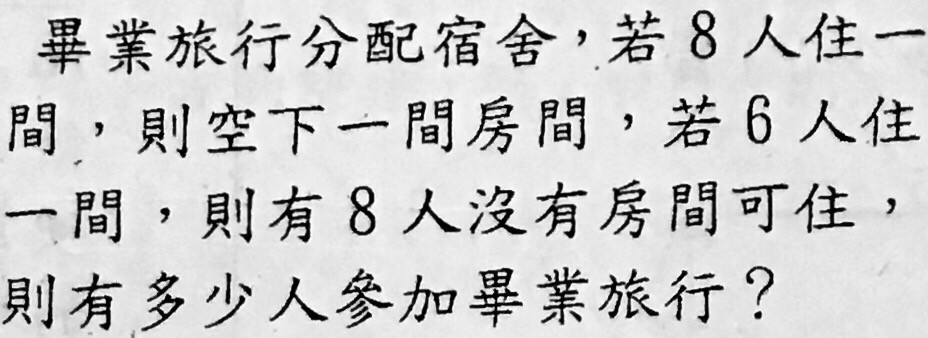 畢業旅行分配宿舍，若 8 人住一
間，則空下一間房間，若 6 人住
一間，則有 8 人沒有房間可住，
則有多少人參加畢業旅行？